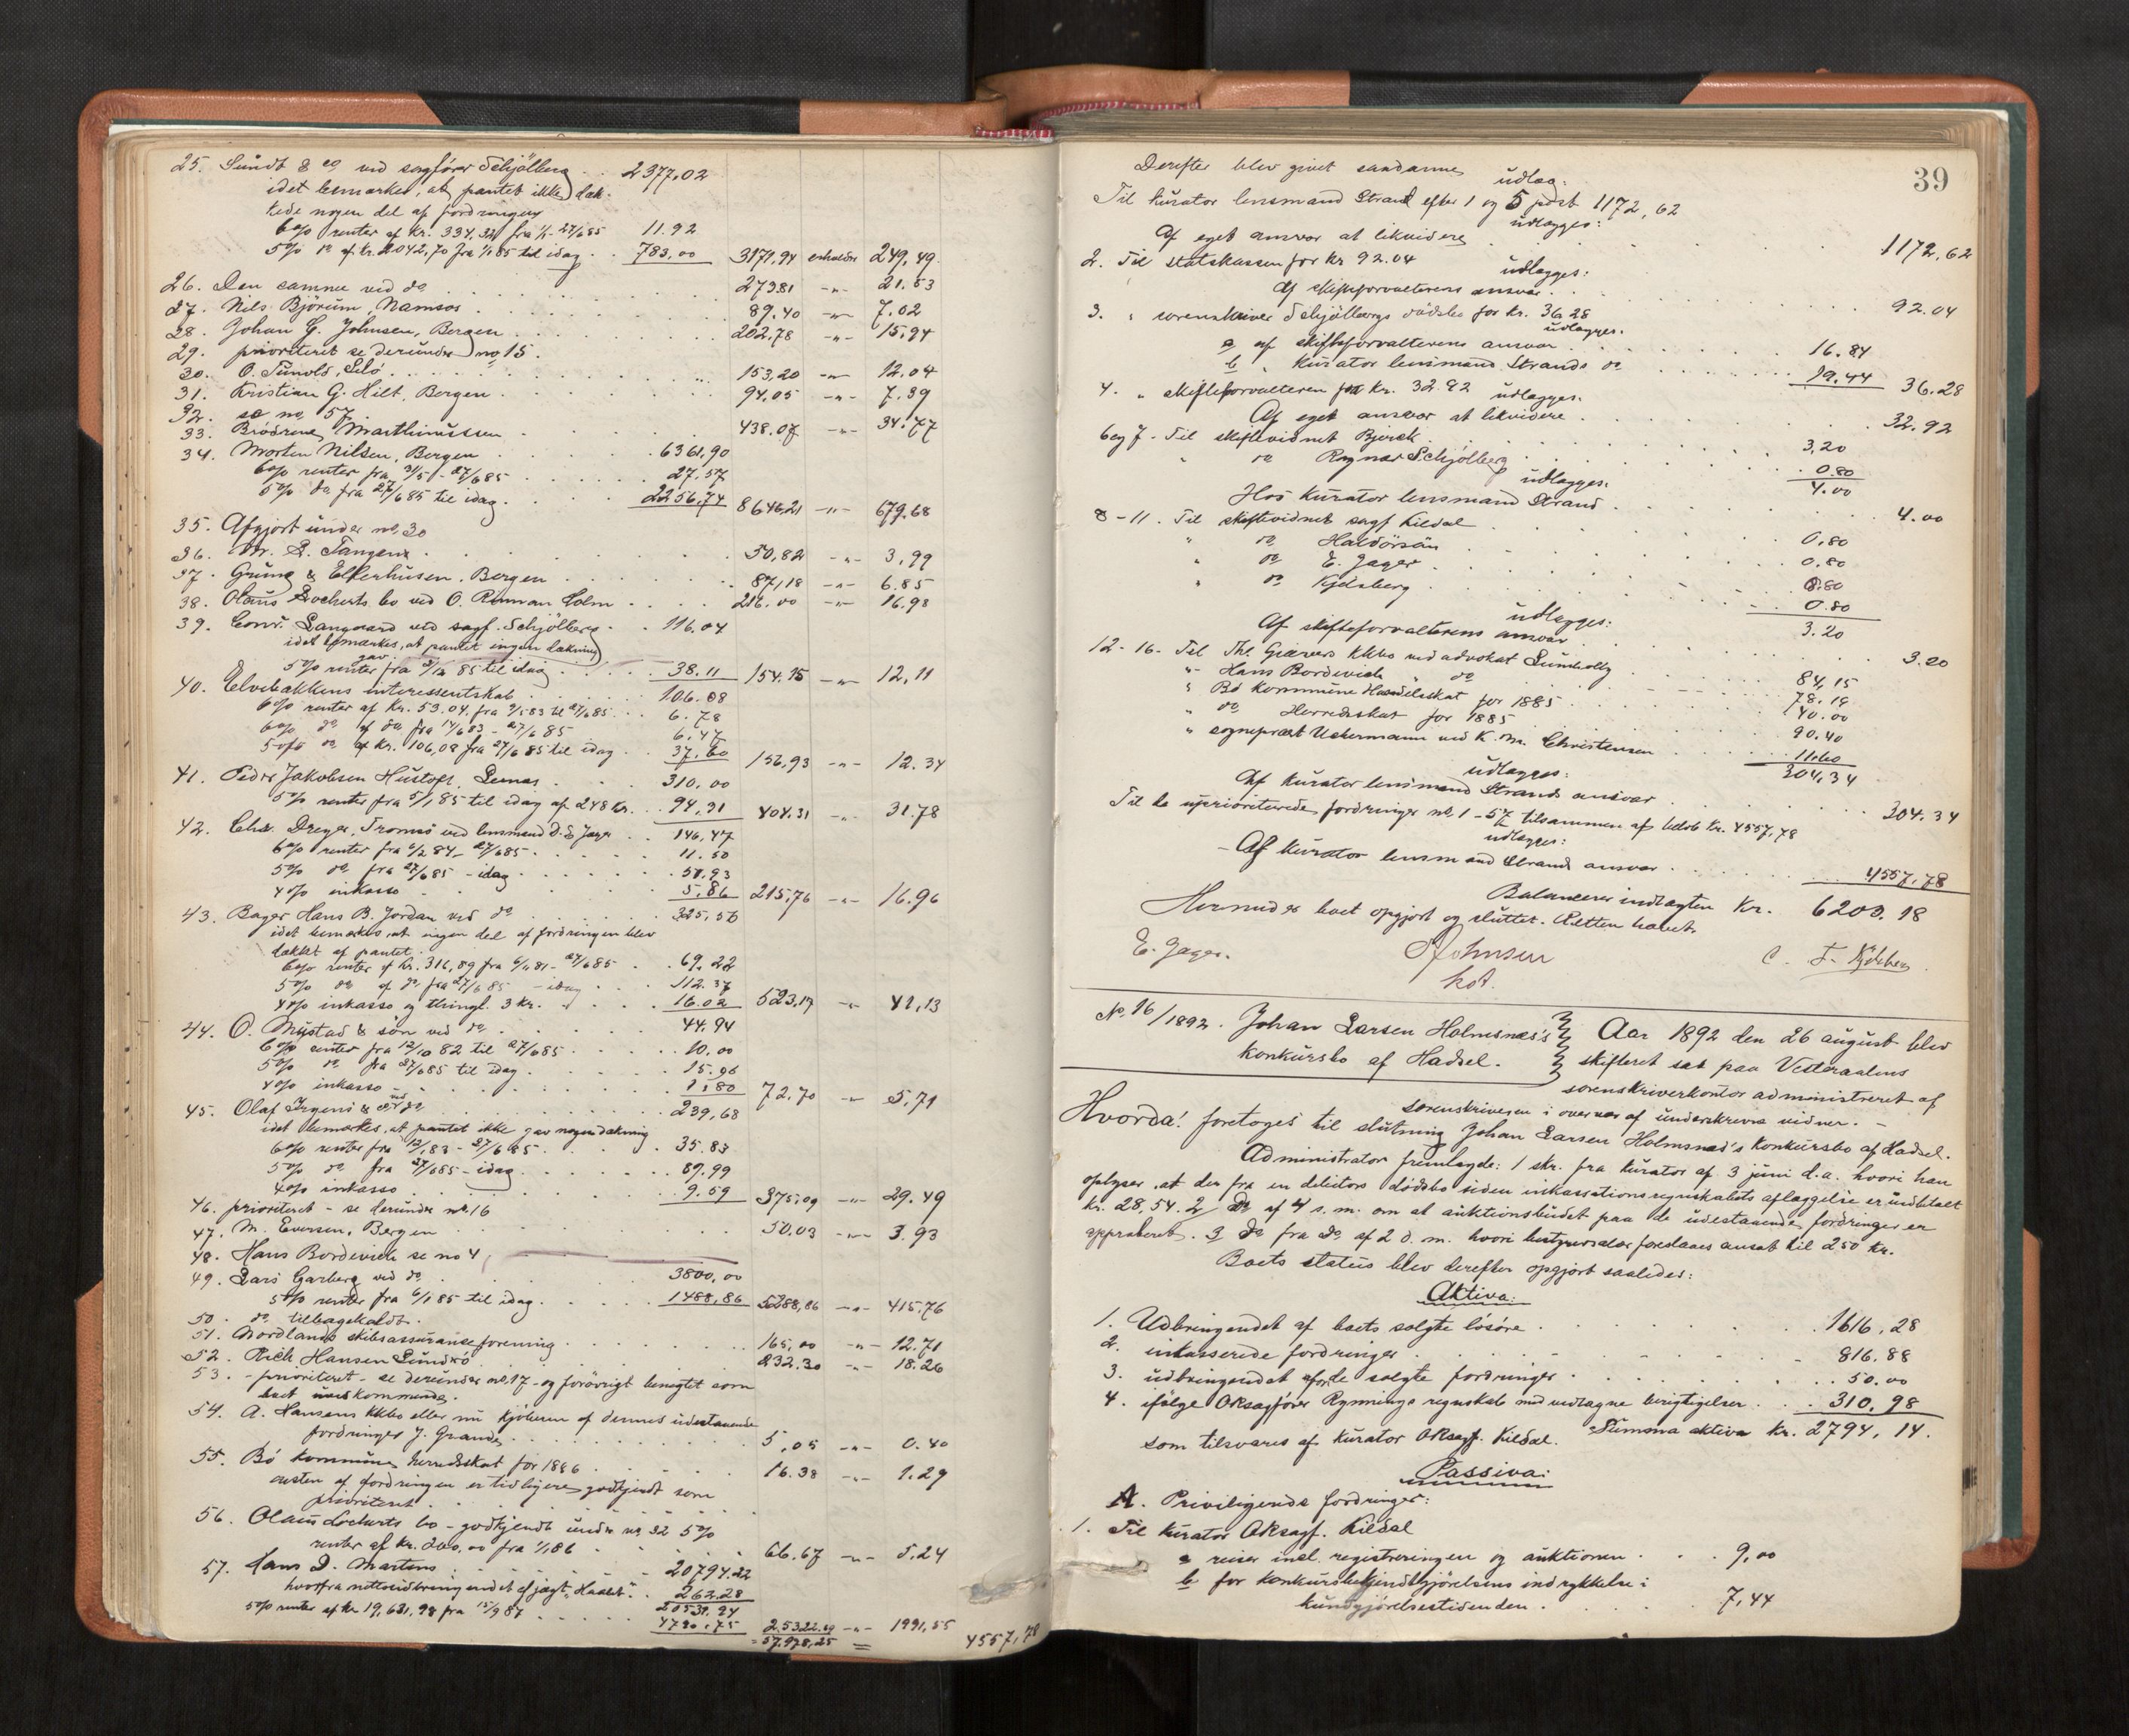 25. Sundt & co ved sagfører Schjölberg . . 2377.02
idet bemærkes, at pantet ikke dæk-
kede nogen del af fordringen
6% renter af kr. 334.32 fra 1/1 - 27/6 85 11.92
5% do af kr. 2042,70 fra 1/1 85 til idag . . 783,00 3171,94 erholder 249,49
26. Den samme ved do 273.81 -"- 21.53
27. Nils Bjørum, Namsos 89.40 -"- 7.02
28. Johan G. Johnsen, Bergen 202,78 -"- 15,94
29. prioriteret se derunder no 15.
30. O. Tunold, Selö 153,20 -"- 12.04
31. Kristian G. Hilt, Bergen 94,05 -"- 7.39
32. se no 57.
33. Brödrene Marthinussen 438.07 -"- 34.77
34. Morten Nilsen, Bergen 6361,90
6% renter fra 31/5 - 27/6 85 27.57
5% do fra 27/6 85 til idag 2256.74 8646,21 -"- 679.68
35. Afgjort under no 30
36. M. S. Tangens 50,82 -"- 3,99
37. Gruno & Ellerhusen, Bergen 87,18 -"- 6.85
38. Olaus Locherts bo ved O. Rinnan Holm 216.00 -"- 16.98
39. Conr. Langaard ved sagf. Schjölberg 116.04
idet bemærkes, at pantet ingen dækning
gav.
5% renter fra 31/12 85 til idag 38.11 154.15 -"- 12,11
40. Elvebakkens interessentskab 106.08
6% renter af kr. 53.04 fra 9/5 83 til 27/6 85 6.78
6% do af do fra 14/6 83 - 27/6 85 6.47
5% do af kr. 106,08 fra 27/6 85 til idag 37.60 156,93 -"- 12.34
41. Peder Jakobsen Hustoft, Lennes 310,00
5% renter fra 5/1 85 til idag af 248 kr. 94,31 404.31 -"- 31.78
42. Chr. Dreyer, Tromsö ved lensmand D. E. Jæger 146,47
6% renter fra 6/2 84 - 27/6 85 11.50
5% do fra 27/6 85 - idag 51.93
4% inkasso 5.86 215,76 -"- 16.96
43. Bager Hans B. Jordan ved do 325,56
idet bemærkes, at ingen del af fordringen blev
dækket af pantet.
6% renter af kr. 316,89 fra 6/11 81 - 27/6 85 69.22
5% do af do fra 27/6 85 - idag 112.37
4% inkasso og thingl. 3 kr. 16.02 523,17 -"- 41,13
44. O. Mustad & sön ved do 44.94
6% renter fra 12/10 82 til 27/6 85 10.00
5% do fra 27/6 85 til idag 15.96
4% inkasso 1.80 72.70 -"- 5,71
45. Olaf Irgens & co ved do 239,68
idet bemærkes, at pantet ikke gav nogen dækning
6% renter fra 12/1 83 - 27/6 85 35.83
5% do fra 27/6 85 - idag 89.99
4% inkasso 9.59 375.09 -"- 29.49
46. prioriteret - se derunder no 16
47. M. Eversen, Bergen 50.03 -"- 3.93
48. Hans Bordevich se no 4
49. Lars Garberg ved do 3800,00
5% renter fra 6/1 85 til idag 1488,86 5288,86 -"- 415.76
50. do tilbagekaldt.
51. Nordlands skibsassuranceforening 165,00 -"- 12.71
52. Rich. Hansen Sundsö 232.30 -"- 18.26
53. - prioriteret - se derunder no 17 - og forövrigt benægtet som
boet uvedkommende.
54. A. Hansens kkbo eller nu kjöberen af dennes udestaaende
fordringer J. Grande 5,05 -"- 0.40
55. Bö kommunes herredsskat for 1886 16.38 -"- 1.29
resten af fordringen er tidligere godkjendt som
prioriteret
56. Olaus Locherts bo - godkjendt under no 32 5%
renter af kr. 200,00 fra 1/1 86 66.67 -"- 5.24
57. Hans D. Martens 20794.22
hvorfra nettoudbringendet af jægt „Haabet“ 262.28
20531.94
5% renter af kr 19,631,98 fra 15/9 87 4790.75 25322.69 -"- 1991,55
57.978,25 = 4557,78
39
Derefter blev givet saadanne
udlæg:
Til kurator lensmand Strand efter 1 og 5 post 1172,62
udlægges:
Af eget ansvar at likvidere 1172,62
2. Til statskassen for kr 92.04
udlægges:
Af skifteforvalterens ansvar 92.04
3. " sorenskriver Schjölbergs dödsbo for kr. 36.28
udlægges.
a af skifteforvalterens ansvar 16.84
b " kurator lensmand Strands do 19.44 36.28
4. " skifteforvalteren for kr. 32.92
udlægges.
Af eget ansvar at likvidere 32.92
6 og 7. Til skiftevidnet Bjerck 3,20
" do Ragnar Schjölberg 0.80
udlægges. 4.00
Hos kurator lensmand Strand 4.00
8-11. Til skiftevidnet sagf Kildal 0,80
" do Haldorsön 0.80
" do E. Jæger 0.80
" do Kjelsberg 0.80
udlægges: 3.20
Af skifteforvalterens ansvar 3.20
12-16. Til Th. Giævers kkbo ved advokat Lumholtz 84,15
" Hans Bordevich " do 78.19
" Bö kommune Handelsskat for 1885 40.00
" do Herredsskat for 1885 90.40
" sogneprest Uckermann ved K. M. Christensen 11.60
udlægges: 304,34
Af kurator lensmand Strands ansvar 304.34
Til de uprioriterede fordringer no 1-57 tilsammen af beløb kr. 4557,78
udlægges:
Af kurator lensmand Strands ansvar 4557.78
Balancerer indtægten Kr. 6203.18
Hermed er boet opgjort og sluttet. Retten hævet.
E. Jæger. Johnsen C. F. Kjelsberg
kst.
No 16/1892. Johan Larsen Holmsnæs's Aar 1892 den 26 august blev
konkursbo af Hadsel. skifteret sat paa Vesteraalens
sorenskriverkontor administreret af
sorenskriveren i overvær af underskrevne vidner. -
Hvorda! foretoges til slutning Johan Larsen Holmsnæs's konkursbo af Hadsel.
Administrator fremlagde: 1 skr. fra kurator af 3 juni d.a. hvori han
oplyser, at der fra en debitors dödsbo siden inkassationsregnskabets aflæggelse er indbetalt
kr. 28,54. 2 Do af 4 s.m. om at auktionsbudet paa de udestaaende fordringer er
approberet. 3 do fra do af 2 d.m. hvori bestyrersalær foreslaaes ansat til 250 kr.
Boets status blev derefter opgjort saaledes:
Aktiva:
1. Udbringendet af boets solgte lösöre 1616,28
2. inkasserede fordringer 816.88
3. udbringendet af de solgte fordringer 50.00
4. ifölge ORsagförer Rynnings regnskab med vedtagne berigtigelser 310,98
som tilsvares af kurator ORsagf. Kildal. Summa aktiva kr. 2794,14.
Passiva:
A. Priviligerede fordringer:
1. Til kurator ORsagf. Kildal
a reiser incl. registreringen og auktionen 9,00
b for konkursbekjendtgjörelsens indrykkelse i
kundgjörelsestidenden 7,44